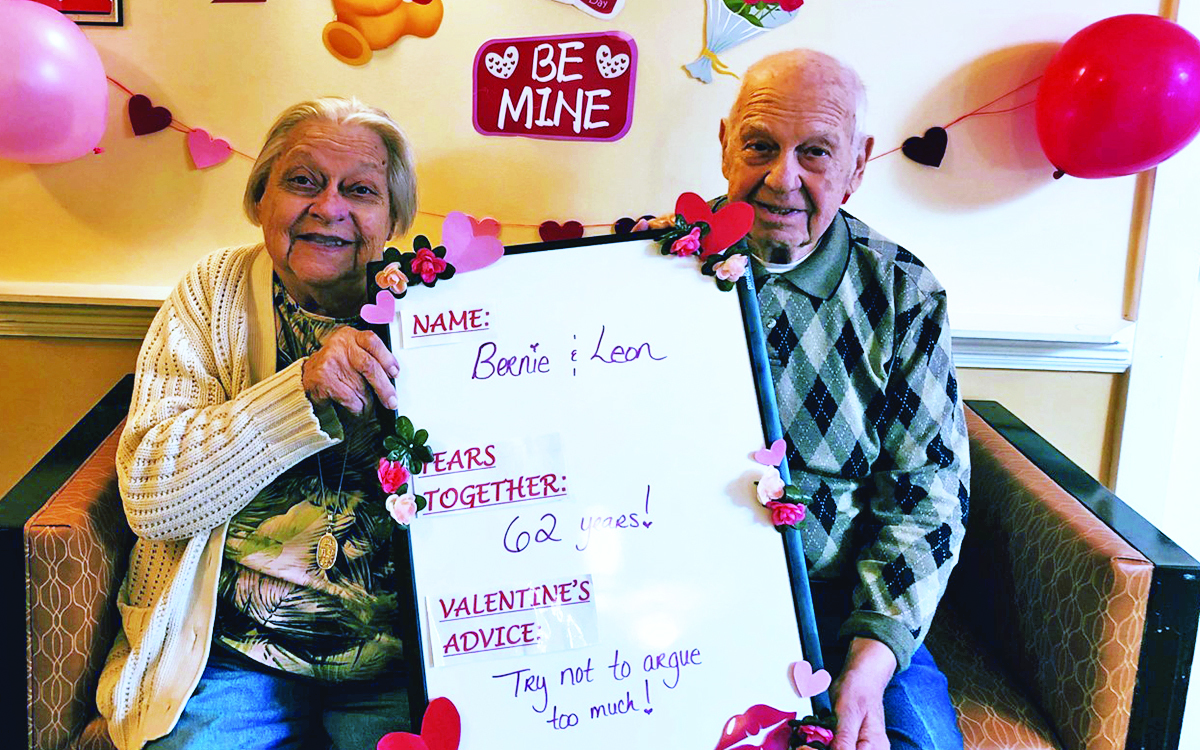 Day
BE
MINE
NAME:
Bernie & Leon
YEARS
TOGETHER:
62 years!
VALENTINE'S
ADVICE:
Try not to argue
too much!